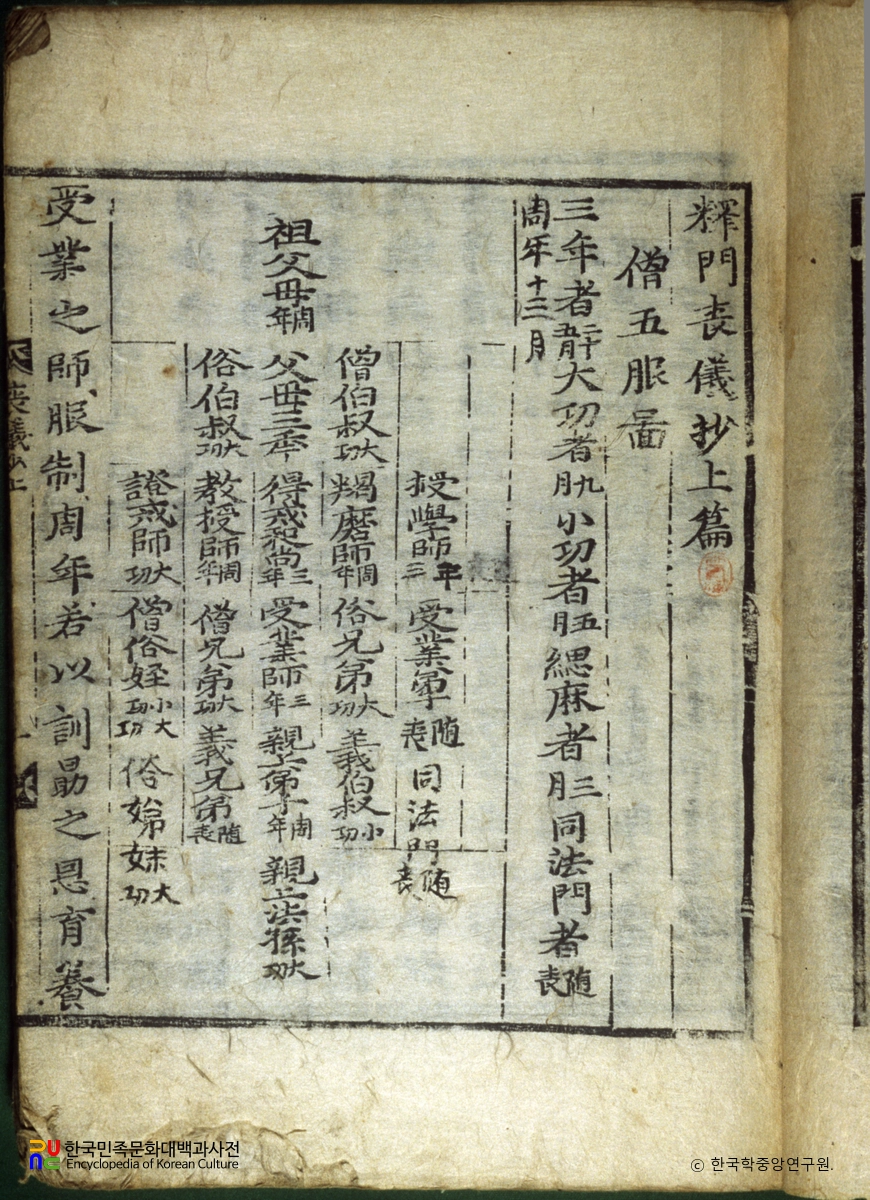 釋門喪儀抄上篇
僧五服啚
三年者二十五月大功者九月小功者五月緦麻者三月同法門者随喪
周年十三月
授學師三年 受業弟子随喪 同法門随喪
僧伯叔大功 羯磨師周年 俗兄弟大功 義伯叔小功
祖父母周年 父母三年 得戒和尚三年 受業師三年 親上弟子周年 親上法孫大功
俗伯叔大功 教授師周年 僧兄弟大功 義兄弟随喪
證戒師大功 僧俗姪小功大功 俗姊妹大功
受業之師服制周年若以訓勗之恩育養
喪義抄上
한국민족문화대백과사전
Encyclopedia of Korean Culture
ⓒ 한국학중앙연구원.